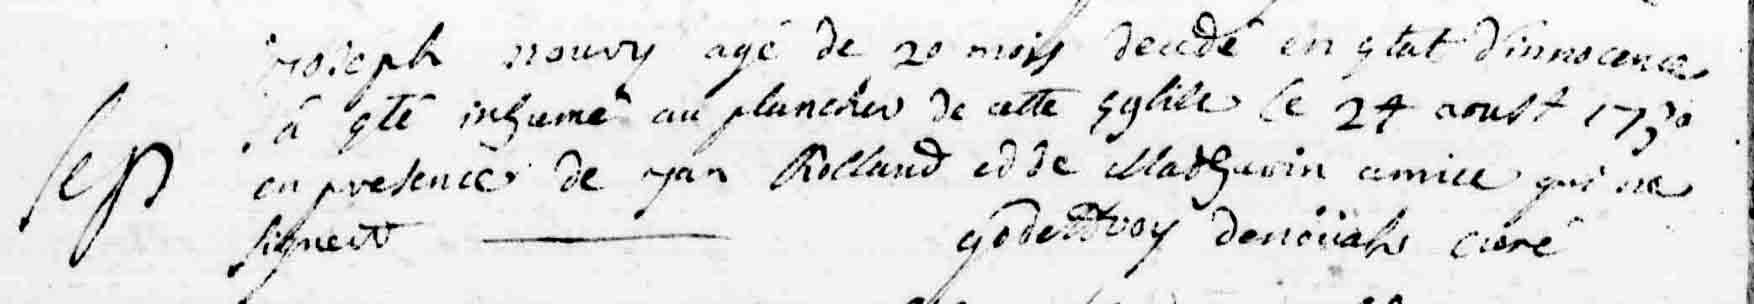 joseph nouvy agé de 20 mois decedé en etat d'innocence
à eté inhumé au plancher de cette eglise le 24 aoust 1730
sep en presence de yan Rolland et de Mathurin amice qui ne
signent godefroy curé